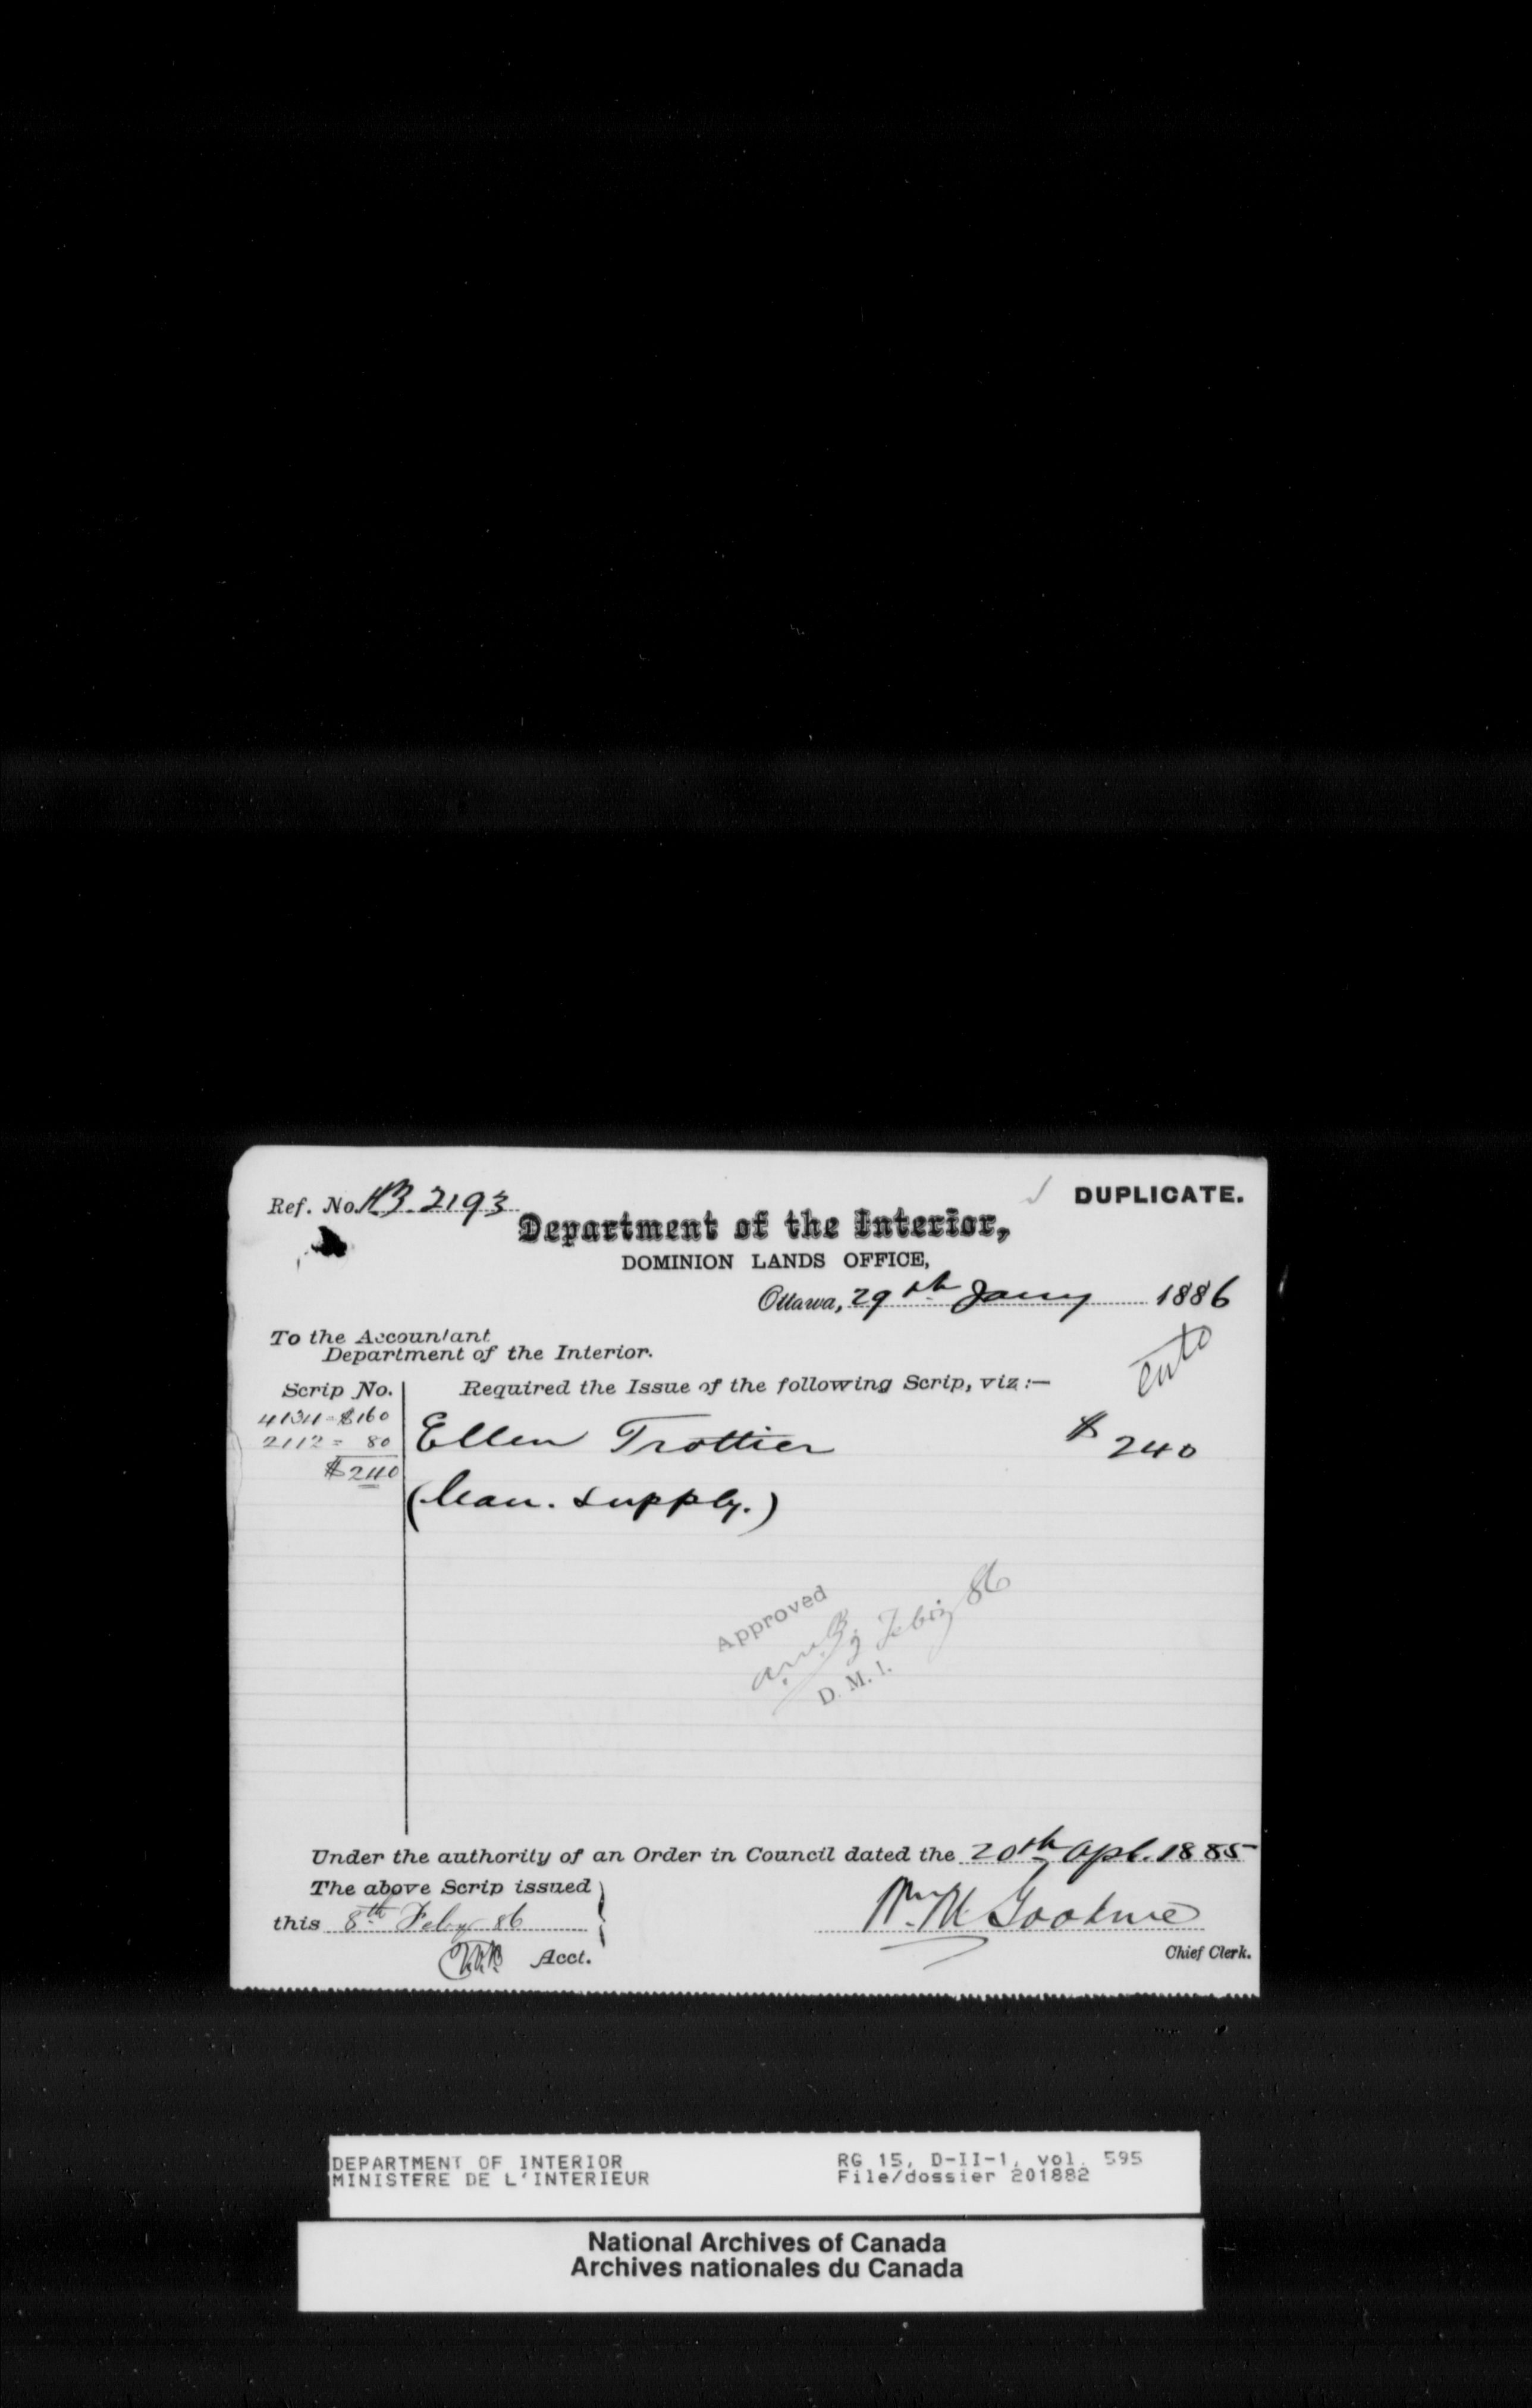 Ref. No. HB 2193
DUPLICATE.
Department of the Interior,
DOMINION LANDS OFFICE,
Ottawa, 29th Jany 1886
To the Accountant
Department of the Interior.
Scrip No.
Required the Issue of the following Scrip, viz:—
= $160
2112 = 80
$240
Ellen Trottier
$240
(Man. Supply.)
Approved
Feby 86
D. M. I.
Under the authority of an Order in Council dated the 20th Apl. 1885
The above Scrip issued
this 8th Feby 86
Acct.
Wm M
Chief Clerk.
DEPARTMENT OF INTERIOR
MINISTERE DE L'INTERIEUR
RG 15, D-II-1, vol. 595
File/dossier 201882
National Archives of Canada
Archives nationales du Canada